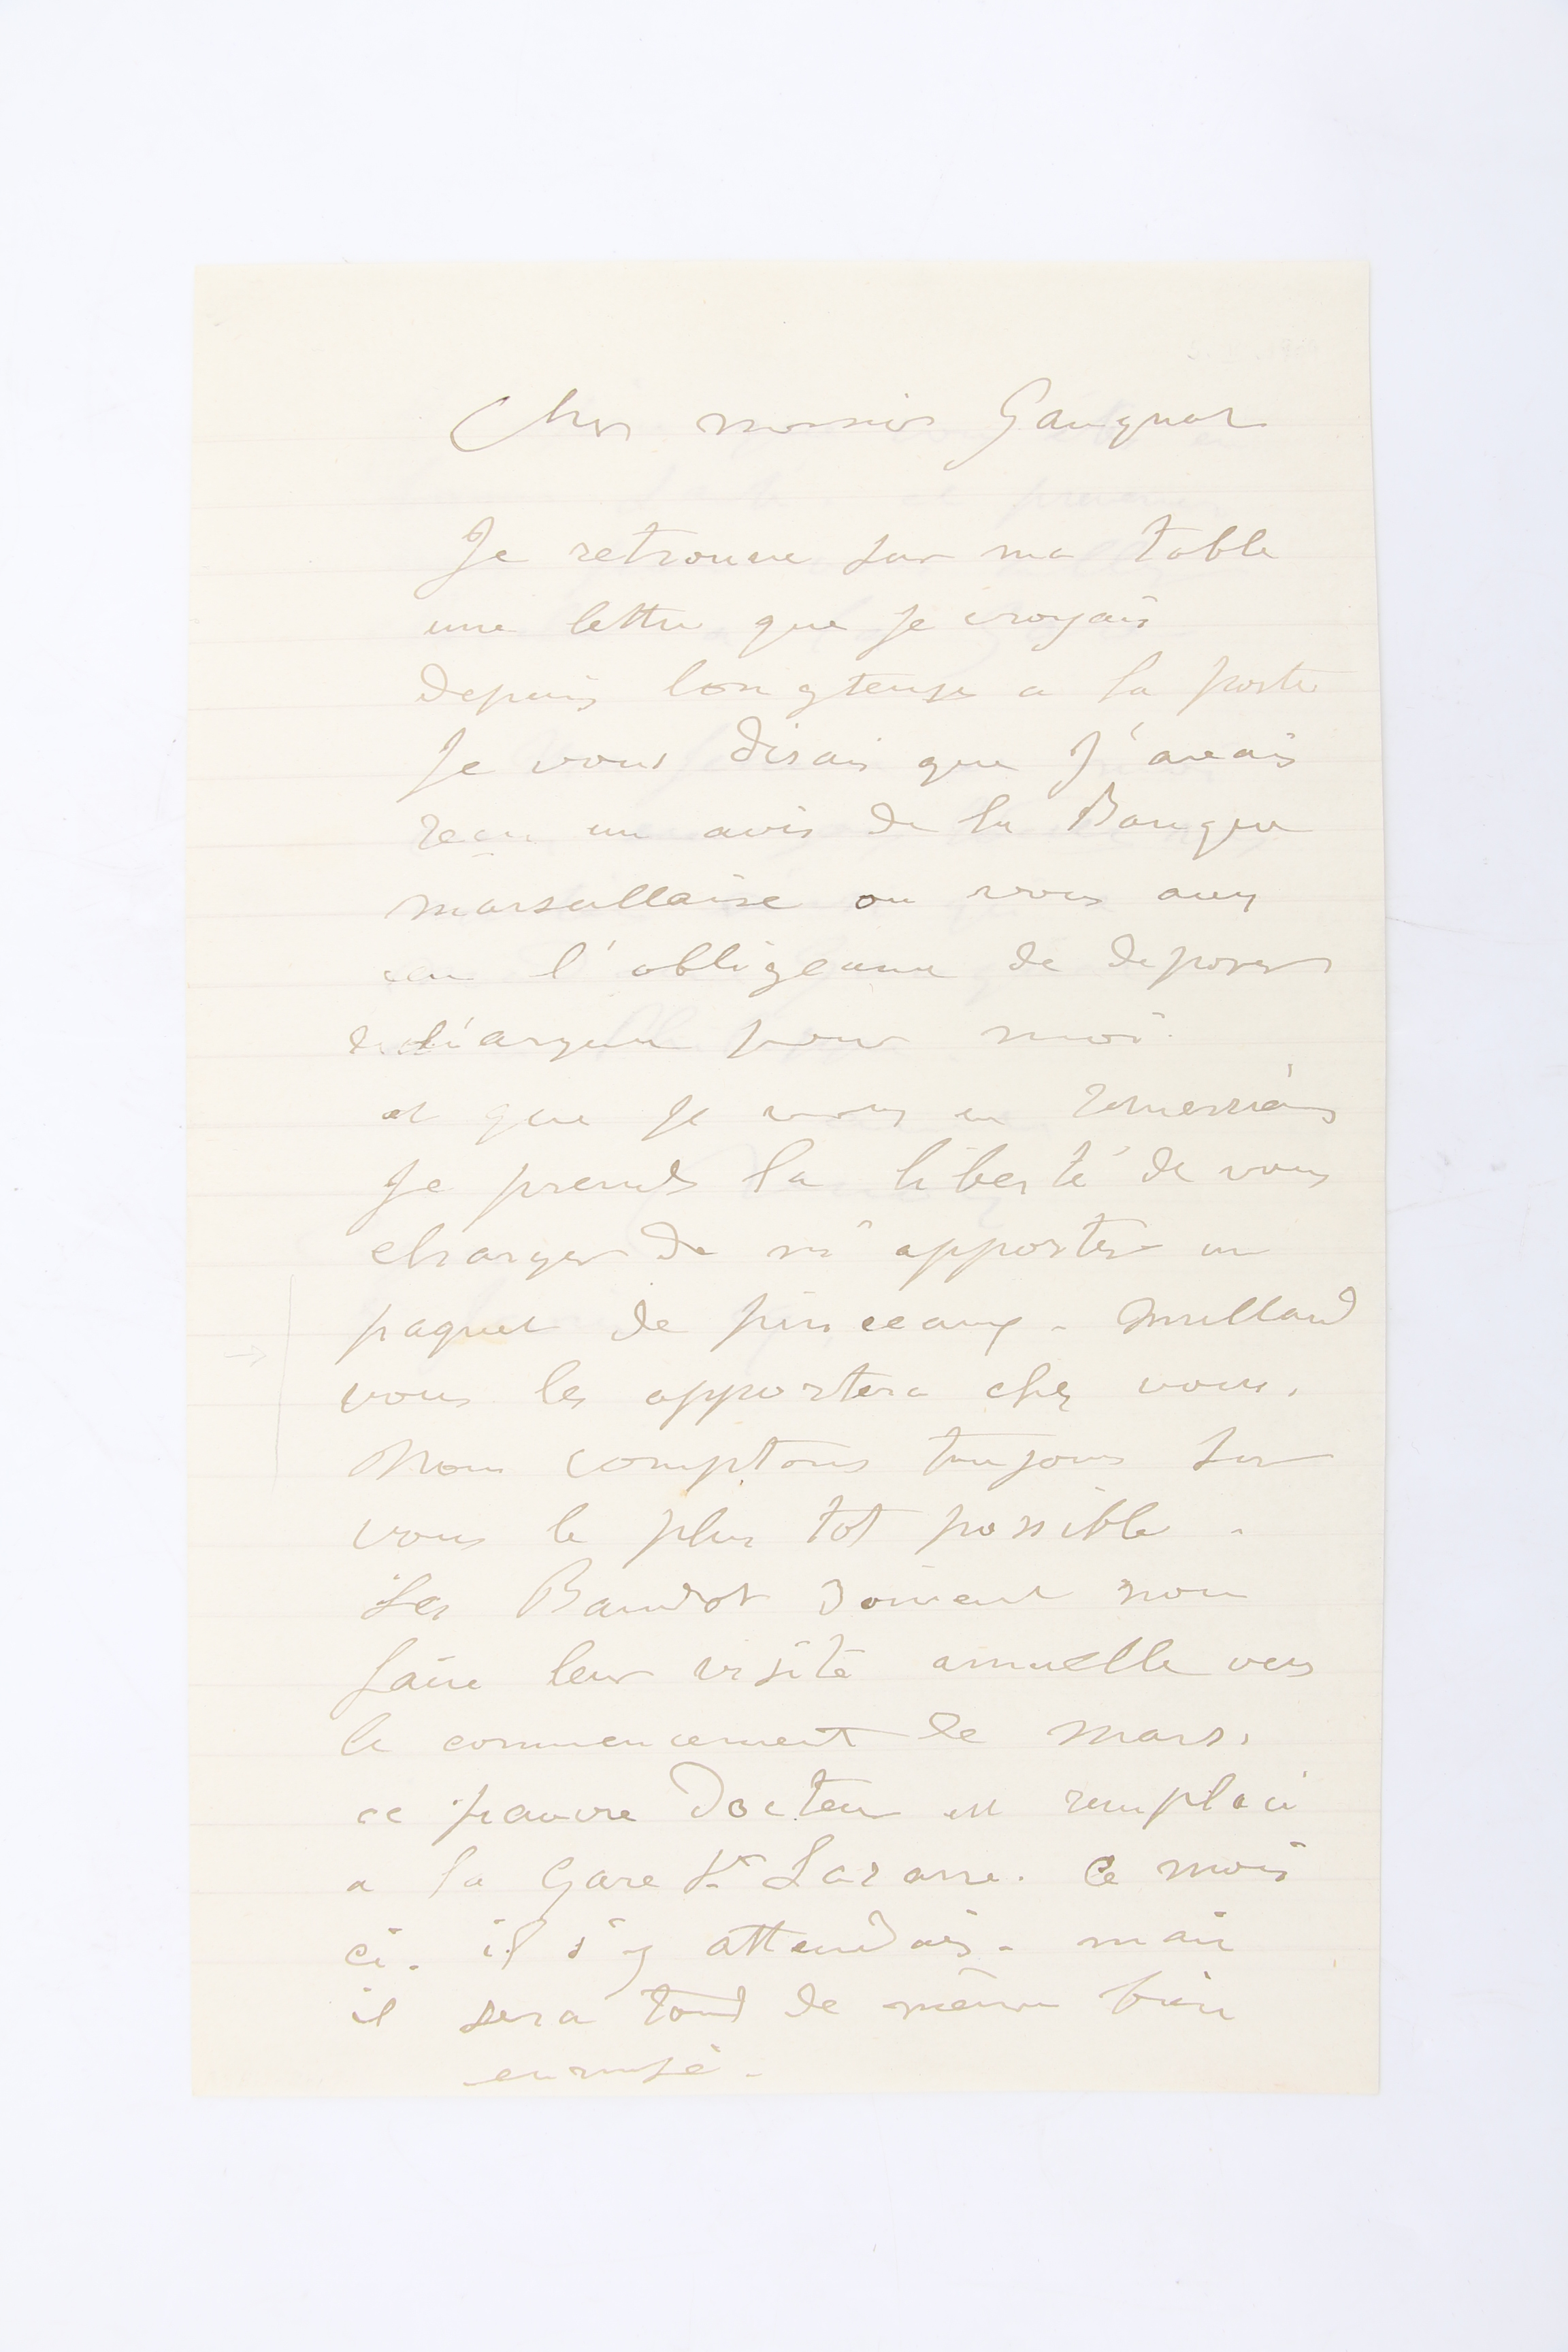 Cher monsieur Gangnat
Je retrouve sur ma table
une lettre que je croyais
depuis longtemps a la poste
Je vous disais que J'avais
reçu un avis de la Banque
marseillaise ou vous avez
eu l'obligeance de deposer
l'argent pour moi.
et que je vous en remerciais
Je prends la liberté de vous
charger de m'apporter un
paquet de pinceaux - Mullard
vous les apportera chez vous.
Nous comptons toujours sur
vous le plus tot possible -
Les Baudot doivent nous
faire leur visite annuelle vers
le commencement de mars.
ce pauvre Docteur est remplacé
a la Gare St Lazarre. Ce mois
ci. il s'y attendais - mais
il sera tout de même bien